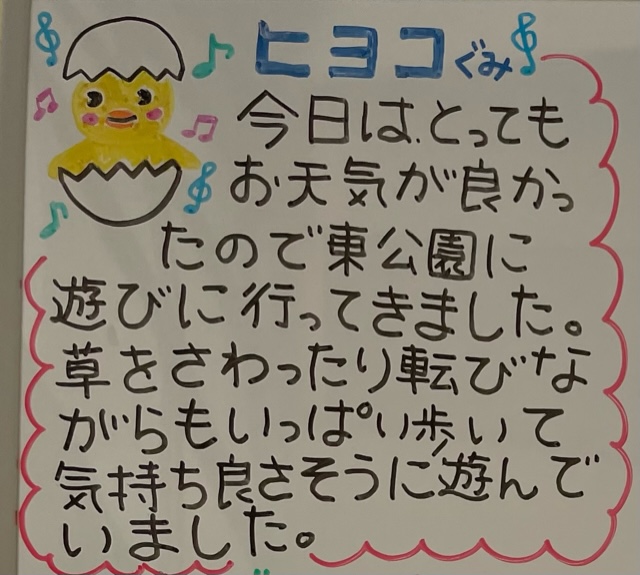 ヒヨコぐみ
今日は、とっても
お天気が良かっ
たので東公園に
遊びに行ってきました。
草をさわったり転びな
がらもいっぱい歩いて
気持ち良さそうに遊んで
いました。